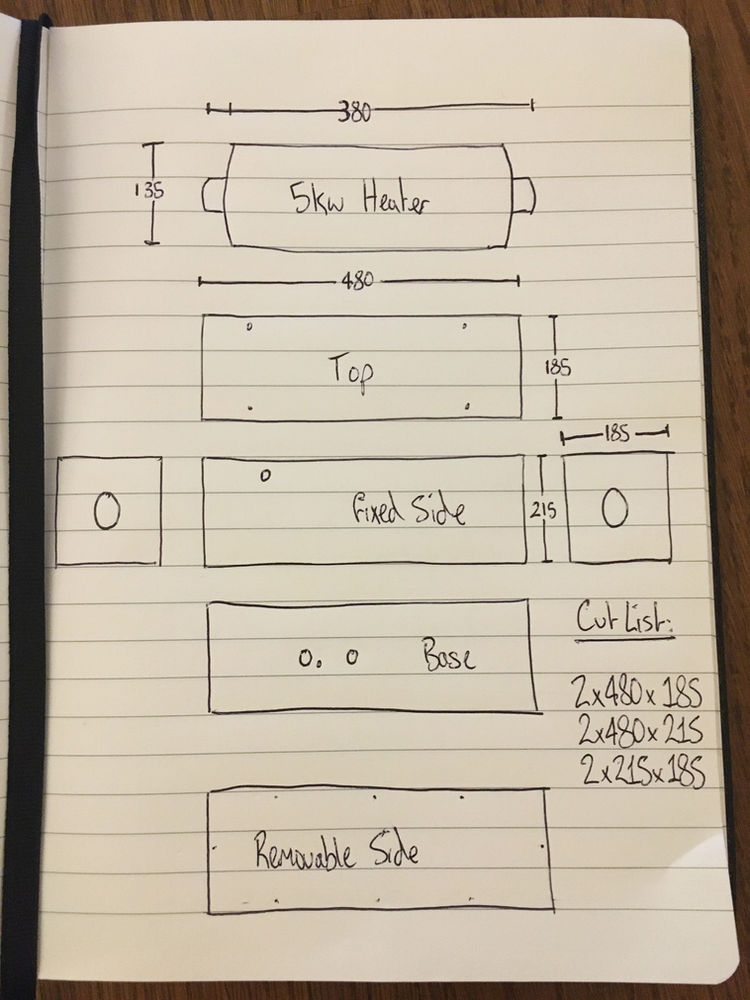 380
135
5kw Heater
480
Top
185
185
Fixed Side
215
Base
Cut List:
2x480x185
2x480x215
2x215x185
Removable Side